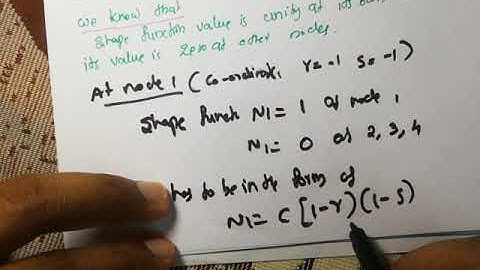 we know that
Shape function value is unity at its own
its value is zero at other nodes.
At node 1 (co-ordinates r = -1 s = -1)
Shape funct N1 = 1 at node 1
N1 = 0 at 2, 3, 4
has to be in the form of
N1 = C [1-r) (1-s)